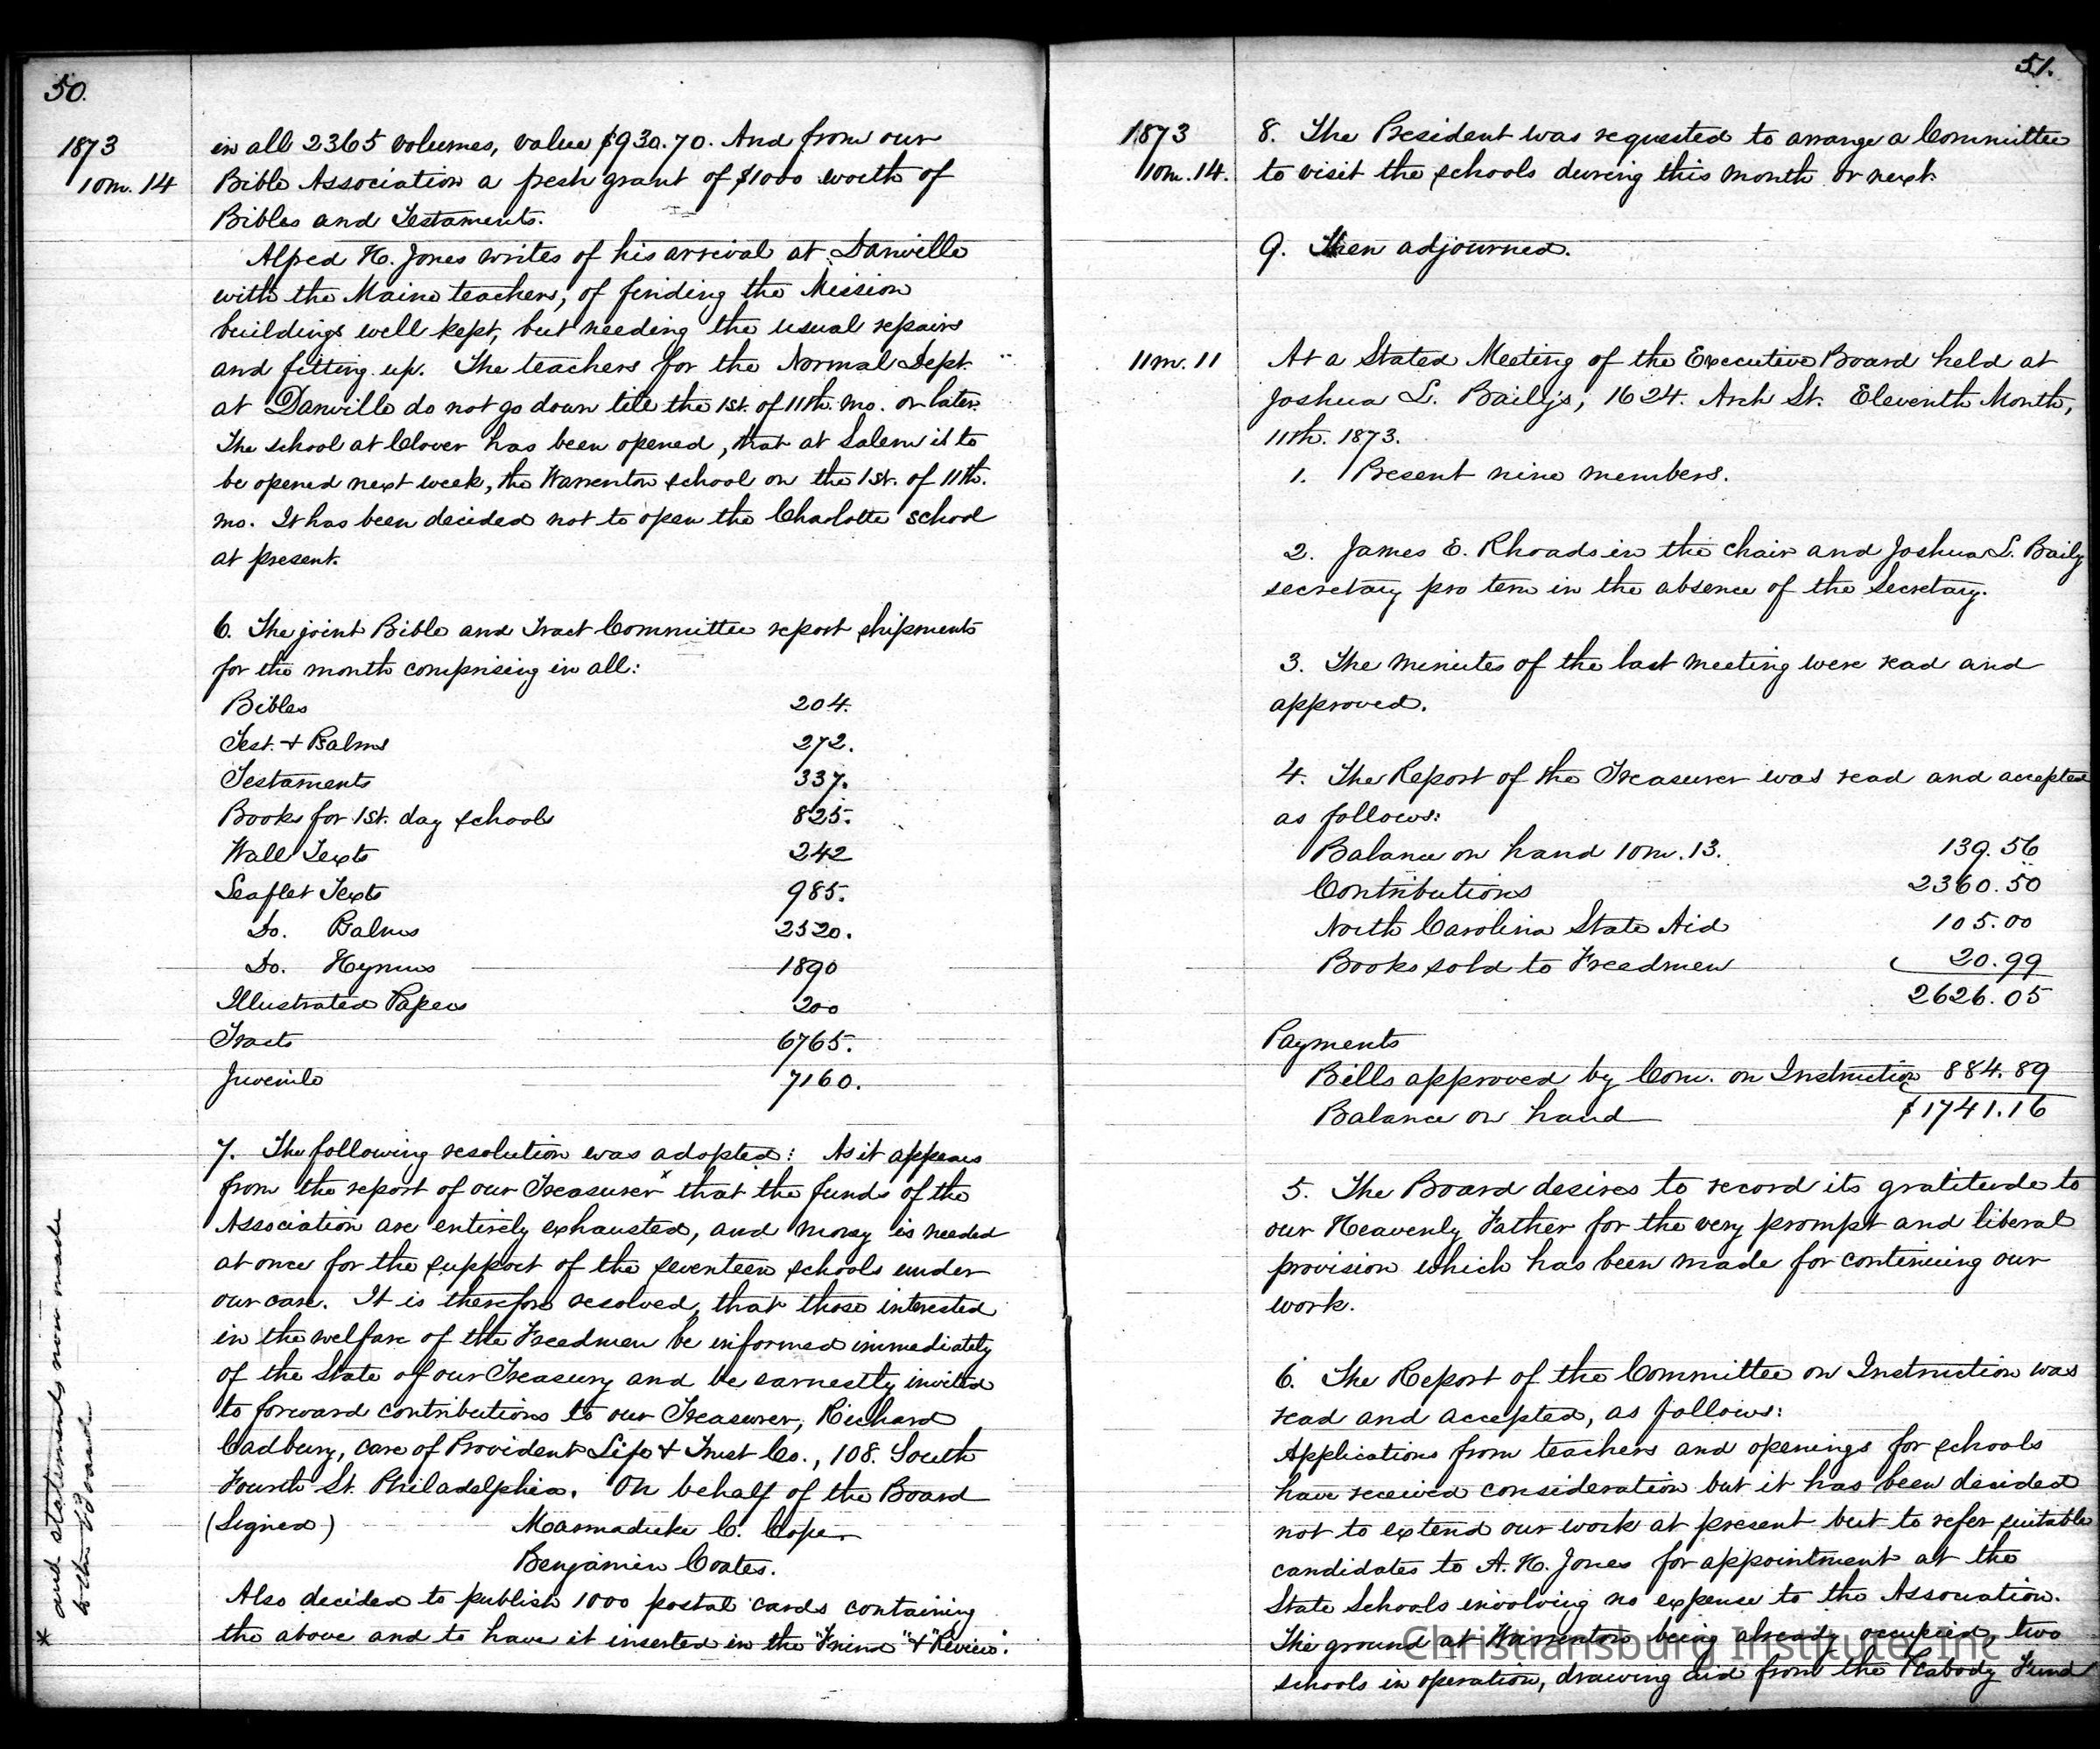 50.
1873
10m. 14
in all 2365 volumes, value $930.70. And from our
Bible Association a fresh grant of $1000 worth of
Bibles and Testaments.
Alfred H. Jones writes of his arrival at Danville
with the Maine teachers, of finding the Mission
buildings well kept, but needing the usual repairs
and fitting up. The teachers for the Normal Dept.
at Danville do not go down till the 1st. of 11th. mo. or later.
The school at Clover has been opened, that at Salem is to
be opened next week, the Warrenton school on the 1st. of 11th.
mo. It has been decided not to open the Charlotte school
at present.
6. The joint Bible and Tract Committee report shipments
for the month comprising in all:
Bibles 204.
Test. + Psalms 272.
Testaments 337.
Books for 1st. day schools 825.
Wall Texts 242
Leaflet Texts 985.
Do. Psalms 2520.
Do. Hymns 1890
Illustrated Papers 200
Tracts 6765.
Juvenile 7160.
7. The following resolution was adopted: As it appears
from the report of our Treasurer* that the funds of the
Association are entirely exhausted, and money is needed
at once for the support of the seventeen schools under
our care. It is therefore resolved, that those interested
in the welfare of the Freedmen be informed immediately
of the State of our Treasury and be earnestly invited
to forward contributions to our Treasurer, Richard
Cadbury, care of Provident Life + Trust Co., 108. South
Fourth St. Philadelphia. On behalf of the Board
(Signed) Marmaduke C. Cope
Benjamin Coates.
Also decided to publish 1000 postal cards containing
the above and to have it inserted in the "Friend" + "Review".
* and statements now made
to the Board
51.
1873
10m. 14.
8. The President was requested to arrange a Committee
to visit the schools during this month or next.
9. Then adjourned.
11m. 11
At a Stated Meeting of the Executive Board held at
Joshua L. Baily's, 1624. Arch St. Eleventh Month,
11th. 1873.
1. Present nine members.
2. James E. Rhoads in the chair and Joshua L. Baily
secretary pro tem in the absence of the Secretary.
3. The minutes of the last meeting were read and
approved.
4. The Report of the Treasurer was read and accepted
as follows:
Balance on hand 10m. 13. 139.56
Contributions 2360.50
North Carolina State Aid 105.00
Books sold to Freedmen 20.99
2626.05
Payments
Bills approved by Com. on Instruction 884.89
Balance on hand $1741.16
5. The Board desires to record its gratitude to
our Heavenly Father for the very prompt and liberal
provision which has been made for continuing our
work.
6. The Report of the Committee on Instruction was
read and accepted, as follows:
Applications from teachers and openings for schools
have received consideration but it has been decided
not to extend our work at present but to refer suitable
candidates to A. H. Jones for appointment at the
State Schools involving no expense to the Association.
The ground at Warrenton being already occupied, two
schools in operation, drawing aid from the Peabody Fund
Christiansburg Institute, Inc